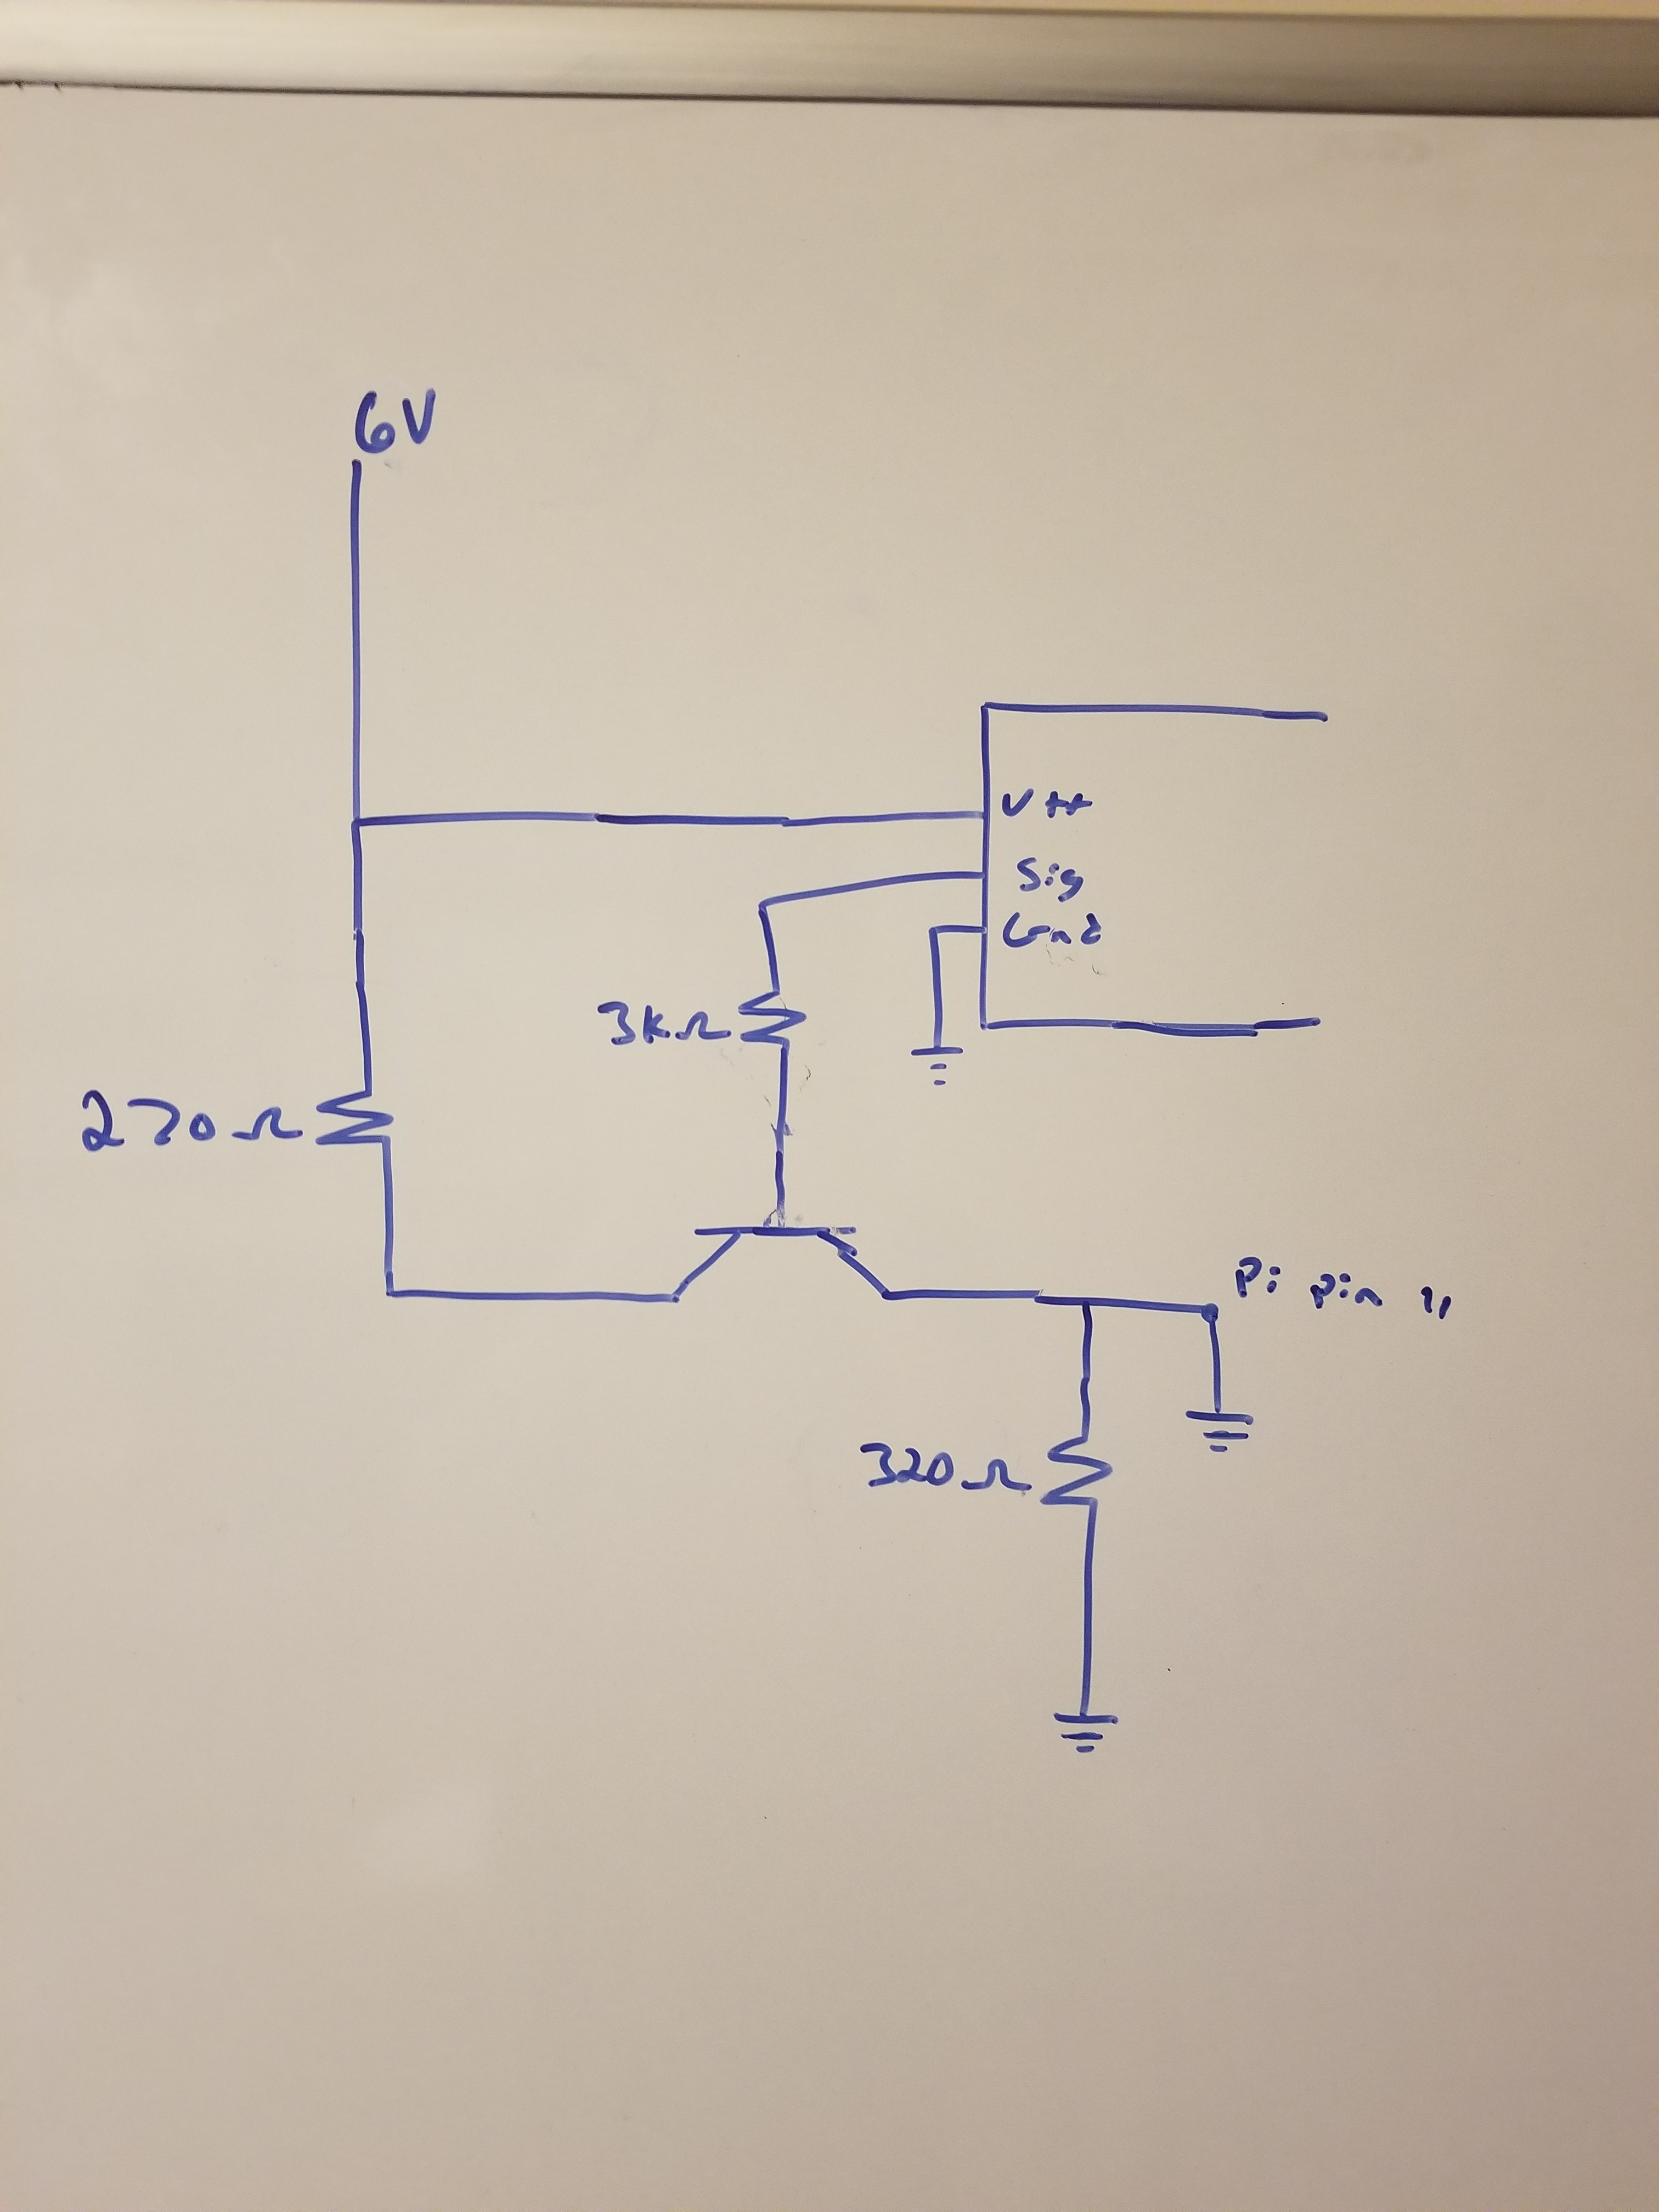 6V
V++
Sig
Gnd
3kΩ
270Ω
Pi pin 11
320Ω